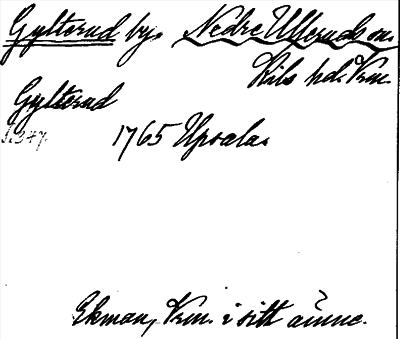 Gylterud by. Nedre Ulleruds sn.
Kils hd. Vrm.
Gylterud
s. 347.
1765 Upsala.
Ekman, Vrm. i sitt ämne.